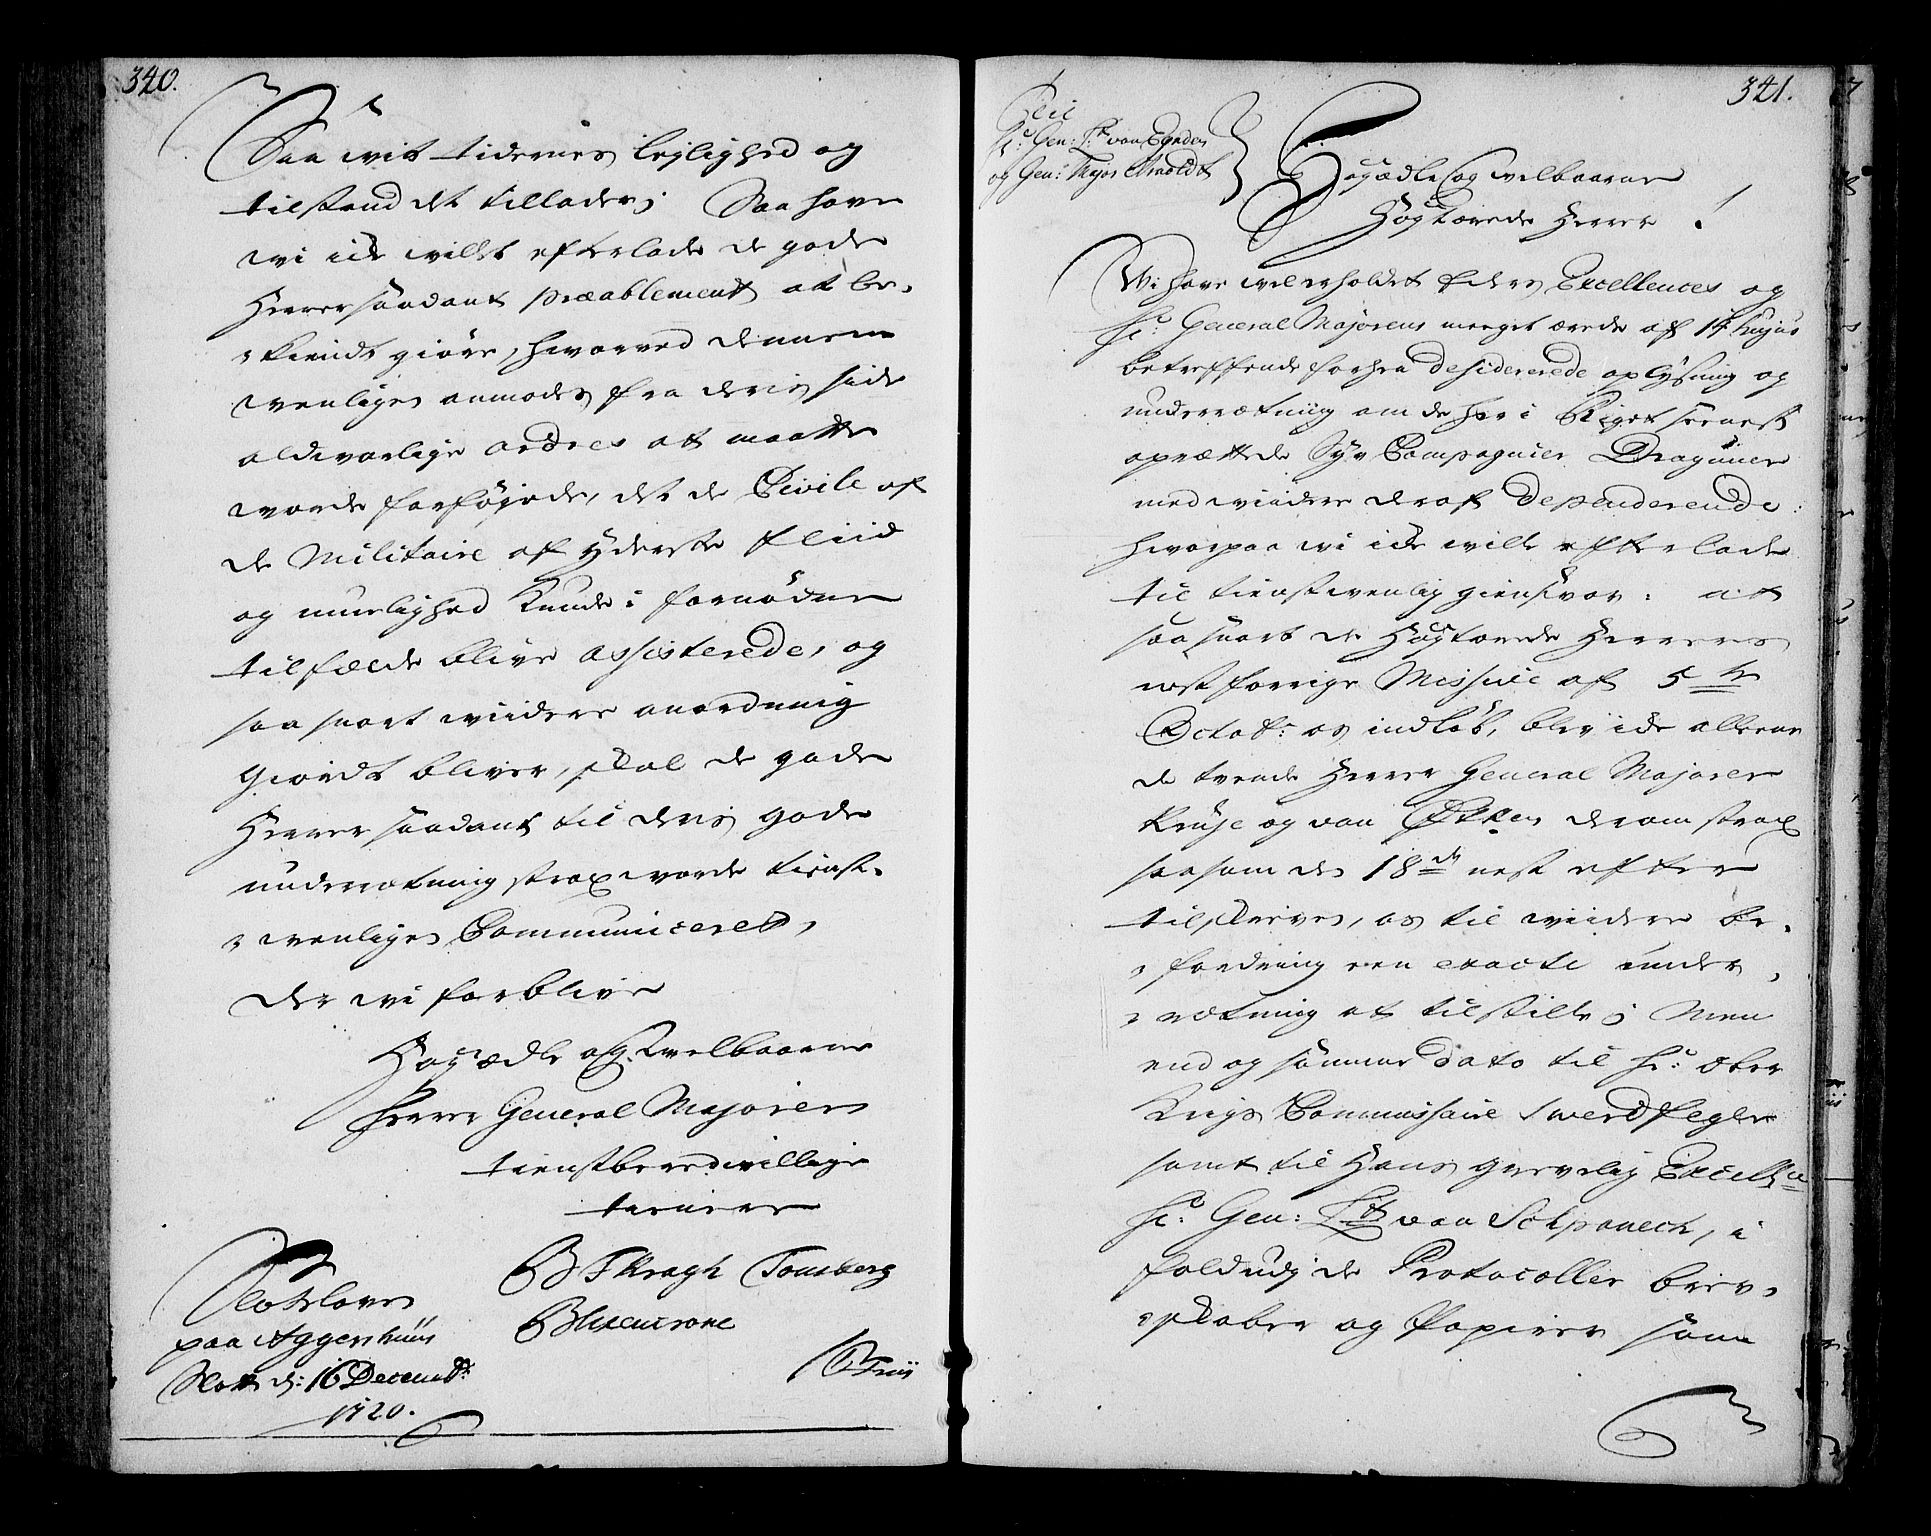 340.
Saa wit tidernes leylighed og
tilstand det tillader; Saa have
wi icke villet efterlade de gode
Herrer saadant præablement at be-
kiendt giøre, hvorved denne
wenligen anmodes fra deris side
aldvorlige ordres at maatte
worde forføyede, det de Civile af
de Militaire af yderste fliid
og muelighed kunde i fornøden
tilfælde blive assisterede, og
saa snart wiidere anordning
giordt bliver, skal de gode
Herrer saadant til deris gode
underretning strax worde tienst-
wenligen Communiceret,
der wi forblive
Høyædle og Welbaarne
Herrer General Majorer
tienstberedwillige
tienere
Slotsloven
paa Aggershuus
Slott d: 16 Decembr:
1720.
F Kragh Tonsberg
341.
Hr: Gen: Lt: von
og Gen: Major Arnoldt
Høyædle og welbaarne
Høytærede Herrer!
Wi have wel erholdet deres Excellences og
Hr: General Majorens meeget ærede af 14 hujus
betreffende forhen desidererede oplysning og
underretning om de her i Riget seenest
oprættede Syv Compagnier Dragoner
med wiidere deraf dependerende:
hvorpaa wi icke wille efterlade
til tienstwenlig giensvar: at
saa snart de Høytærede Herrers
nest forrige Missive af 5te
Octobr: os indløb, blev icke alleene
de tvende Herrer General Majorer
Kruse og von Øtken derom strax
saasom den 18de nest efter
tilskreven, os til wiidere be-
fordring een exacte under-
rætning at tilstille; Men
end og samme Dato til Hr: Ober
Krigs Commissaire Swerdfeger
samt til Hans grevelig Excellce
Hr: Gen: Lt von Schponeck, i
fald udj de Protocoller brev-
skaber og Papirer som